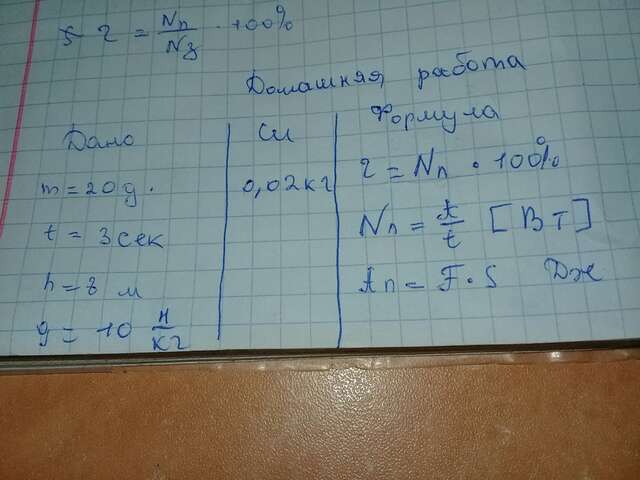 5 η = Nп/Nз · 100%
Домашняя работа
Дано
m = 20g.
t = 3 сек
h = 8 м
g = 10 Н/кг
Си
0,02 кг
Формула
η = Nп · 100%
Nп = A/t [Вт]
Aп = F · S Дж